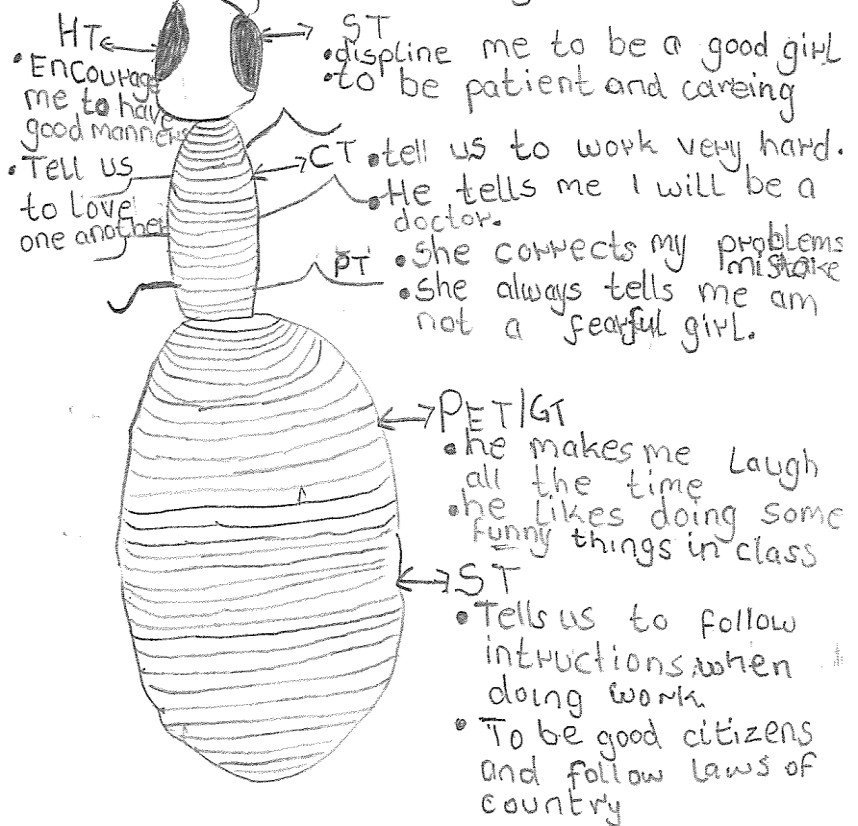 HT
• Encourage
me to have
good manners
• Tell us
to Love
one another
ST
• displine me to be a good girl
• to be patient and careing
CT • tell us to work very hard.
• He tells me I will be a
doctor.
PT • She corrects my problems
mistake
• She always tells me am
not a fearful girl.
PET/GT
• he makes me Laugh
all the time
• he likes doing some
funny things in class
ST
• Tells us to follow
intructions when
doing work
• To be good citizens
and follow laws of
country